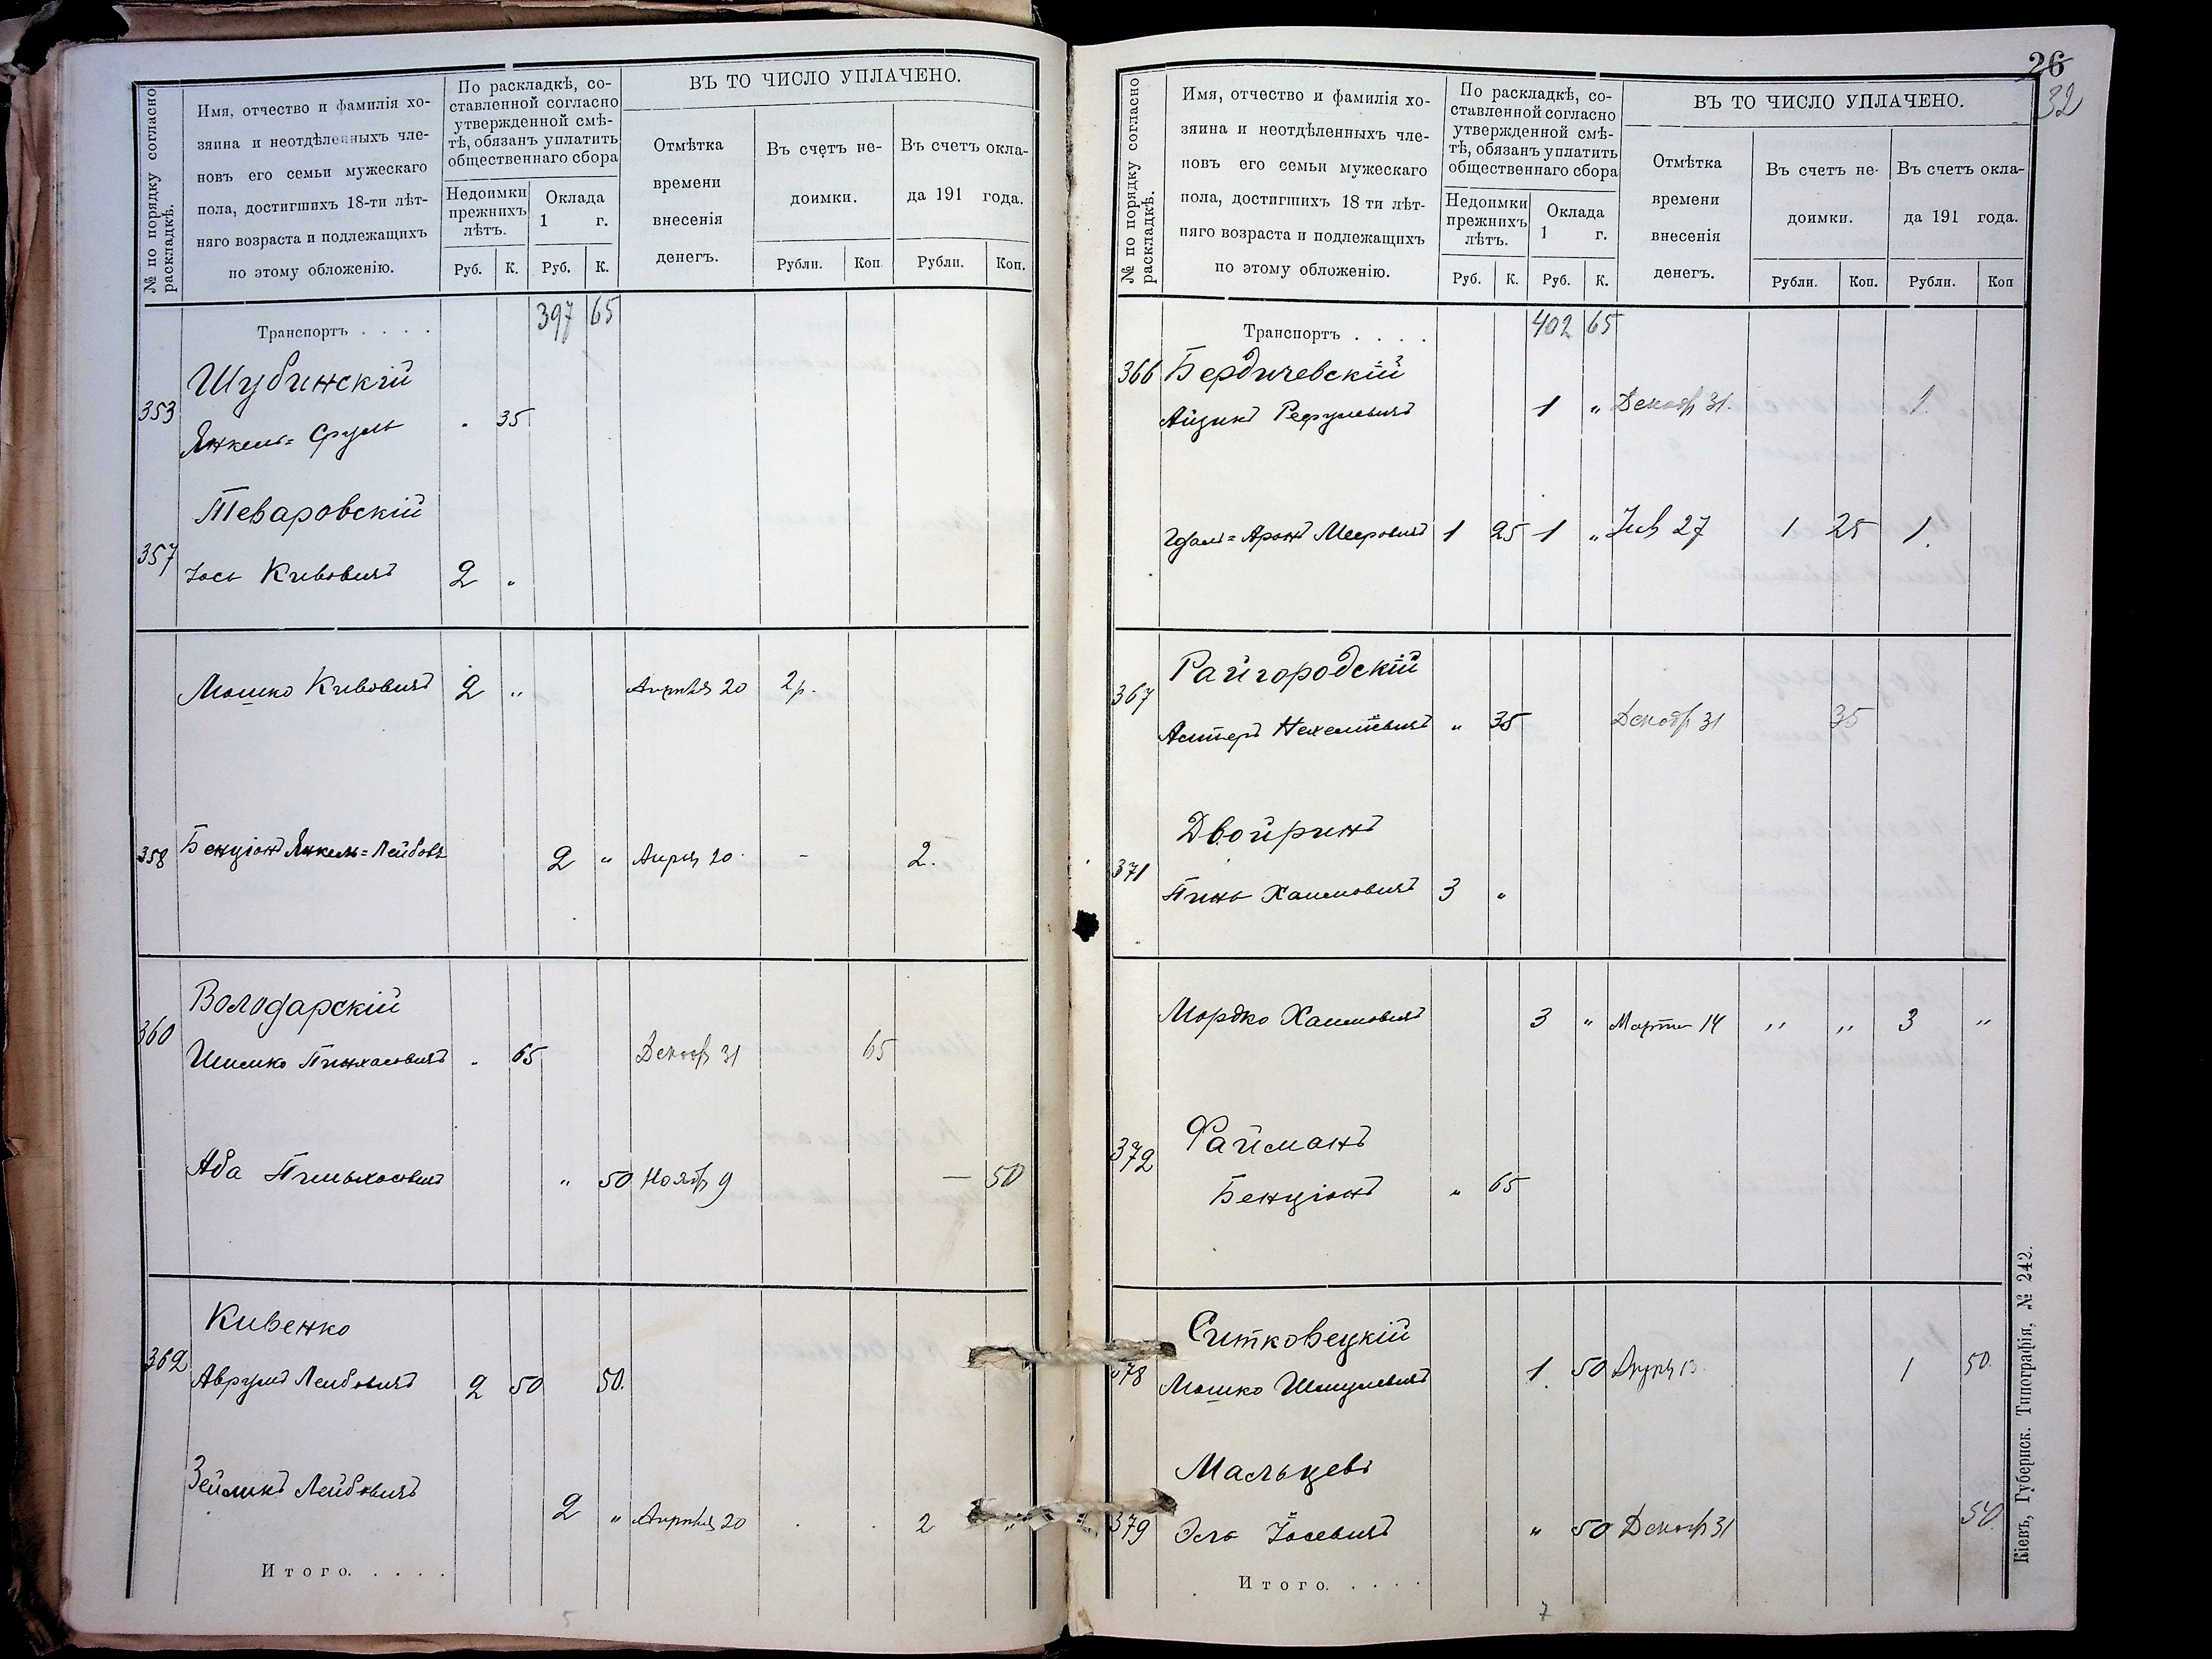 № по порядку согласно раскладкѣ.
Имя, отчество и фамилія хо-
зяина и неотдѣленныхъ чле-
новъ его семьи мужескаго
пола, достигшихъ 18-ти лѣт-
няго возраста и подлежащихъ
по этому обложенію.
По раскладкѣ, со-
ставленной согласно
утвержденной смѣ-
тѣ, обязанъ уплатить
общественнаго сбора
Недоимки
прежнихъ
лѣтъ.
Оклада
1 г.
Руб. К. Руб. К.
ВЪ ТО ЧИСЛО УПЛАЧЕНО.
Отмѣтка
времени
внесенія
денегъ.
Въ счетъ не-
доимки.
Въ счетъ окла-
да 191 года.
Рубли. Коп Рубли. Коп.
Транспортъ . . . . 397 65
Шубинскій
353 Янкель=Сруль . 35
Теваровскій
357 Іось Кивовичъ 2 „
Мошко Кивовичъ 2 „ Апрѣля 20 2р.
358 Бенціонъ Янкель=Лейбовъ 2 „ Апрѣ 20 - 2.
Володарскій
360 Шимко Пинхасовичъ . 65 Декабр 31 65
Аба Пиньхасовичъ „ 50 Ноябр 9 — 50
Кивенко
362 Аврумъ Лейбовичъ 2 50 50.
Зейликъ Лейбовичъ
2 „ Апрѣля 20 . . 2 „
Итого. . . . .
5
26
32
№ по порядку согласно раскладкѣ.
Имя, отчество и фамилія хо-
зяина и неотдѣленныхъ чле-
новъ его семьи мужескаго
пола, достигшихъ 18 ти лѣт-
няго возраста и подлежащихъ
по этому обложенію.
По раскладкѣ, со-
ставленной согласно
утвержденной смѣ-
тѣ, обязанъ уплатить
общественнаго сбора
Недоимки
прежнихъ
лѣтъ.
Оклада
1 г.
Руб. К. Руб. К.
ВЪ ТО ЧИСЛО УПЛАЧЕНО.
Отмѣтка
времени
внесенія
денегъ.
Въ счетъ не-
доимки.
Въ счетъ окла-
да 191 года.
Рубли. Коп. Рубли. Коп
Транспортъ . . . . 402 65
366 Бердичевскій
Айзикъ Рефулевичъ 1 „ Декабр 31. 1.
Аронъ Мееровичъ 1 25 1 „ 27 1 25 1.
Райгородскій
367
Нехемьевичъ „ 35 Декабр 31 35
Двойринъ
371
Пинь Хаимовичъ 3 „
Мордко Хаимовичъ 3 „ Марта 14 „ „ 3 „
Файманъ
372
Бенціонъ „ 65
Ситковецкій
378 Мошко Шмулевичъ 1 50 13 1 50.
Мальцевъ
379 Эль Іосевичъ „ 50 Декабр 31 50
Итого. . . . .
7
Кіевъ, Губернск. Типографія, № 242.